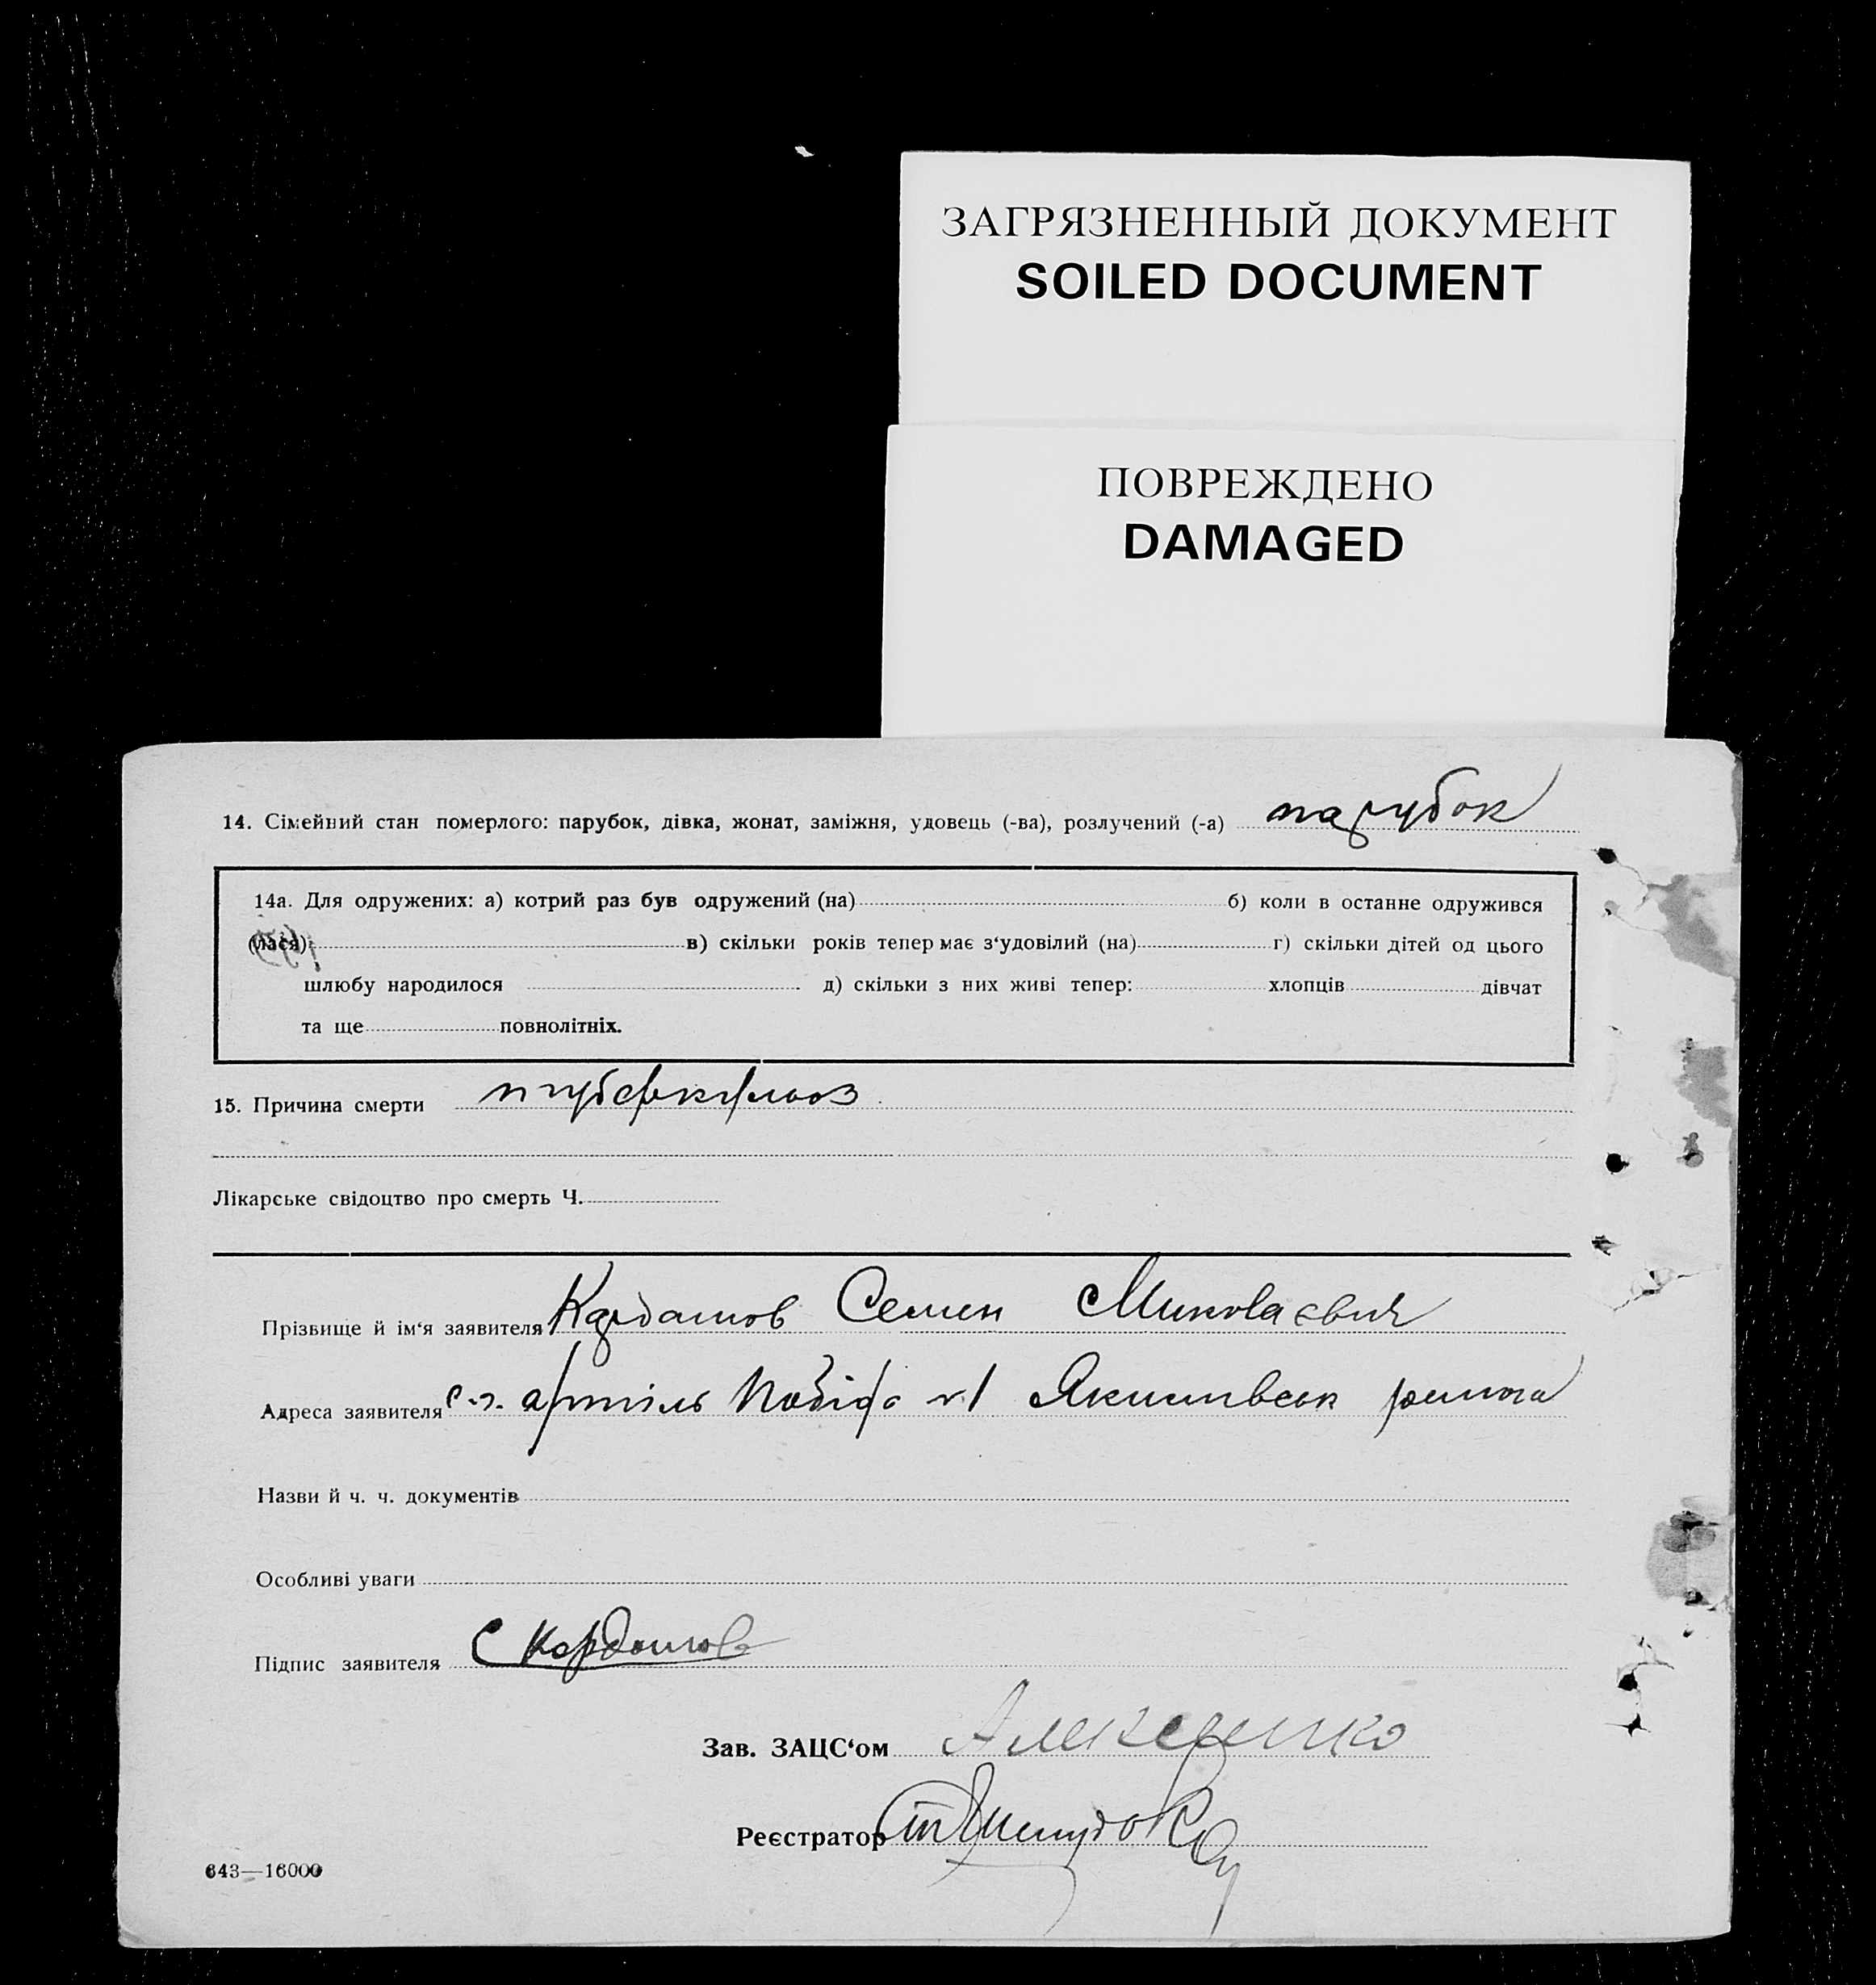 ЗАГРЯЗНЕННЫЙ ДОКУМЕНТ
SOILED DOCUMENT
ПОВРЕЖДЕНО
DAMAGED
14. Сімейний стан померлого: парубок, дівка, жонат, заміжня, удовець (-ва), розлучений (-а) парубок
14а. Для одружених: а) котрий раз був одружений (на) б) коли в останне одружився
(лася): в) скільки років тепер має з‘удовілий (на) г) скільки дітей од цього
шлюбу народилося д) скільки з них живі тепер: хлопців дівчат
та ще повнолітніх.
15. Причина смерти туберкульоз
Лікарське свідоцтво про смерть Ч.
Прізвище й ім‘я заявителя Кардашов Семен Миколаєвич
Адреса заявителя артіль Побіда
Назви й ч. ч. документів
Особливі уваги
Підпис заявителя С Кардашов
Зав. ЗАЦС‘ом
Реєстратор
643—16000